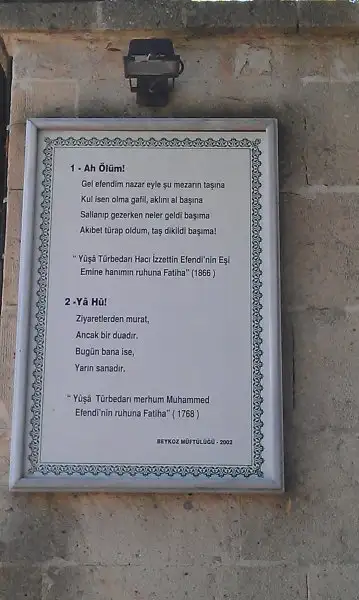 1 - Ah Ölüm!
Gel efendim nazar eyle şu mezarın taşına
Kul isen olma gafil, aklını al başına
Sallanıp gezerken neler geldi başıma
Akıbet türap oldum, taş dikildi başıma!
“ Yûşâ Türbedarı Hacı İzzettin Efendi'nin Eşi
Emine hanımın ruhuna Fatiha” (1866 )
2 -Yâ Hû!
Ziyaretlerden murat,
Ancak bir duadır.
Bugün bana ise,
Yarın sanadır.
“ Yûşâ Türbedarı merhum Muhammed
Efendi'nin ruhuna Fatiha” ( 1768 )
BEYKOZ MÜFTÜLÜĞÜ - 2002